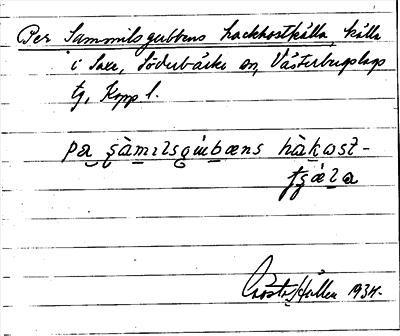 Per Sammilsgubbens hackhostkälla källa
i Saxe, Söderbärke sn, Västerbergslags
tg, Kopp l.
pa sàmilsgúbæns hàkost-
tʂæla
Gösta Hallen 1934.